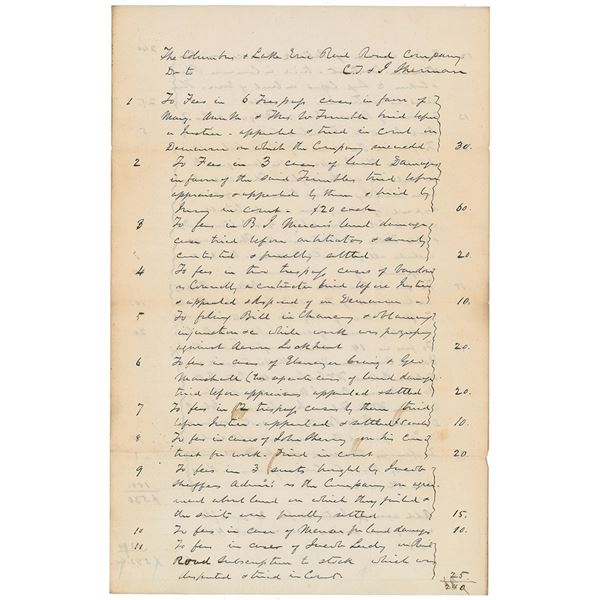 The Columbus & Lake Erie Rail Road Company
Dr to C.T. & J Sherman
1 To Fees in 6 Trespass cases in favor of
Mary & Thos. W Trumble tried before
a Justice - appealed & tried in court on
Demurrer on which the Company succeeded 30.
2 To Fees in 3 cases of Land Damages
in favor of the said Trumbles tried before
appraisers & appealed by them & tried by
Jury in court - $20 each 60.
3 To fees in B. J. land damage
case tried before arbitrators & severely
contested & finally settled 20.
4 To fees in two trespass cases of
vs Connelly a contractor tried before Justice
& appealed & disposed of on Demurrer 10.
5 To filing Bill in Chancery & obtaining
injunction &c while work was progressing
against Aaron Lockhart 20.
6 To fees in cases of Ebenezer & Geo
Marshall (two separate cases of land damage
tried before appraisers appealed & settled 20.
7 To fees in 2 trespass cases by them tried
before Justice - appealed & settled 10.
8 To fees in cases of John Sherry on his con
tract for work. Tried in court 20
9 To fees in 3 suits brought by Jacob
Sheffers Admr. vs the Company on agree
ment about land on which they failed &
the suits were finally settled 15.
10 To fees in case of for land damage 10.
11 To fees in cases of Jacob on Rail
Road Subscription to stock which was
disputed & tried in Court 25
240